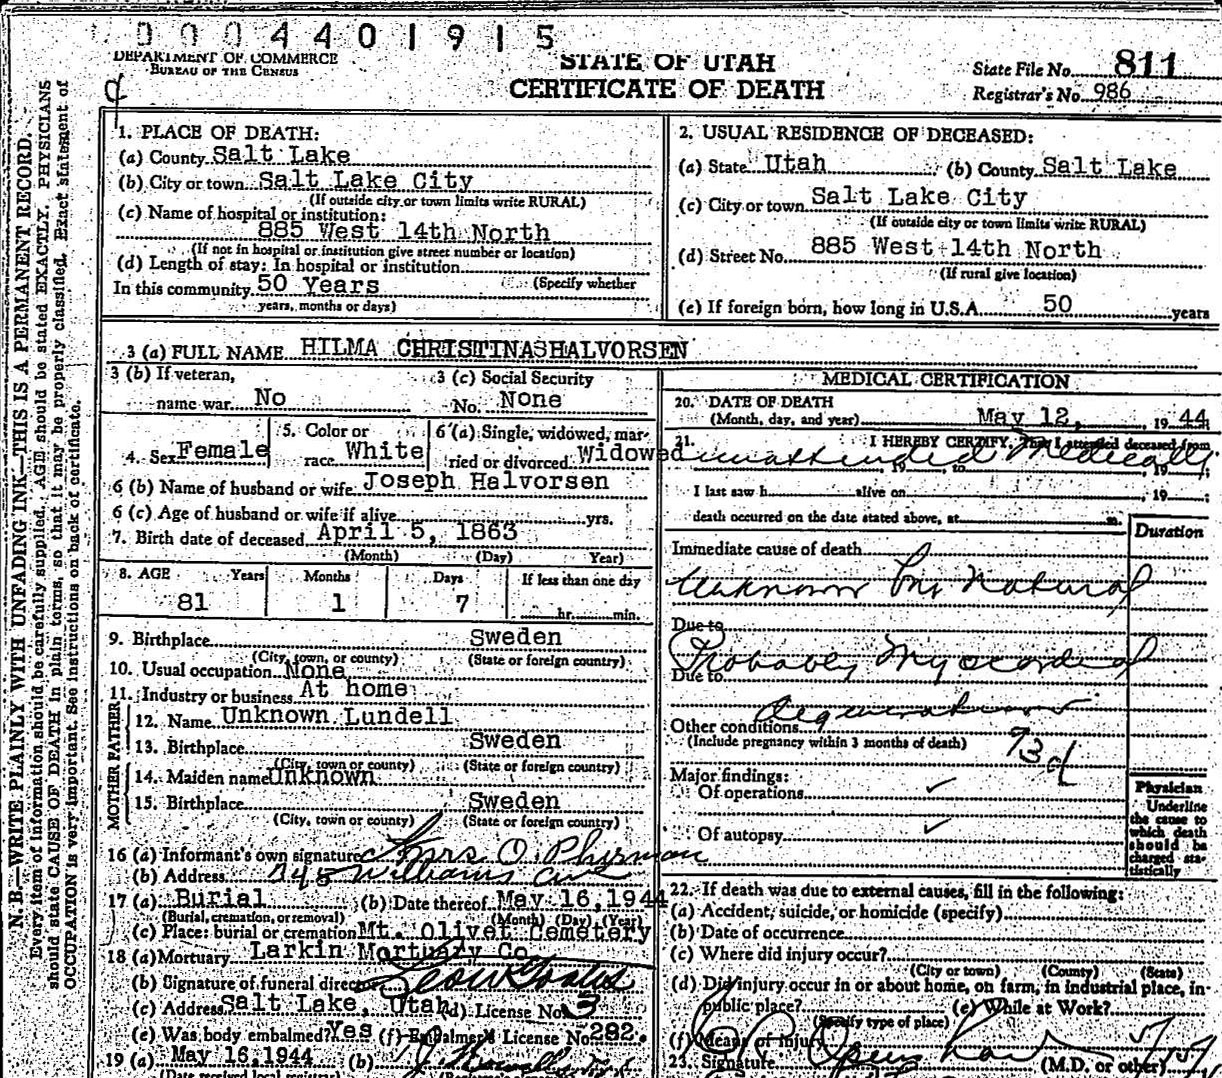 0004401915
DEPARTMENT OF COMMERCE
BUREAU OF THE CENSUS
STATE OF UTAH
CERTIFICATE OF DEATH
State File No. 811
Registrar's No. 986
N. B.—WRITE PLAINLY WITH UNFADING INK—THIS IS A PERMANENT RECORD.
Every item of information should be carefully supplied. AGE should be stated EXACTLY. PHYSICIANS
should state CAUSE OF DEATH in plain terms, so that it may be properly classified. Exact statement of
OCCUPATION is very important. See instructions on back of certificate.
1. PLACE OF DEATH:
(a) County Salt Lake
(b) City or town Salt Lake City
(If outside city or town limits write RURAL)
(c) Name of hospital or institution:
885 West 14th North
(If not in hospital or institution give street number or location)
(d) Length of stay: In hospital or institution
(Specify whether
In this community 50 Years
years, months or days)
2. USUAL RESIDENCE OF DECEASED:
(a) State Utah (b) County Salt Lake
(c) City or town Salt Lake City
(If outside city or town limits write RURAL)
(d) Street No. 885 West 14th North
(If rural give location)
(e) If foreign born, how long in U.S.A. 50 years
3 (a) FULL NAME HILMA CHRISTINA HALVORSEN
3 (b) If veteran,
name war No
3 (c) Social Security
No. None
4. Sex Female
5. Color or
race White
6 (a) Single, widowed, mar-
ried or divorced Widowed
6 (b) Name of husband or wife Joseph Halvorsen
6 (c) Age of husband or wife if alive yrs.
7. Birth date of deceased April 5, 1863
(Month) (Day) Year)
8. AGE Years Months Days If less than one day
81 1 7 hr. min.
9. Birthplace Sweden
(City, town, or county) (State or foreign country)
10. Usual occupation None
11. Industry or business At home
FATHER
12. Name Unknown Lundell
13. Birthplace Sweden
(City, town or county) (State or foreign country)
MOTHER
14. Maiden name Unknown
15. Birthplace Sweden
(City, town or county) (State or foreign country)
16 (a) Informant's own signature Mrs. O.
(b) Address 745 Williams Ave
17 (a) Burial (b) Date thereof May 16, 1944
(Burial, cremation, or removal) (Month) (Day) (Year)
(c) Place: burial or cremation Mt. Olivet Cemetery
18 (a) Mortuary Larkin Mortuary Co.
(b) Signature of funeral director
(c) Address Salt Lake, Utah (d) License No. 3
(e) Was body embalmed? Yes (f) Embalmer's License No. 282.
19 (a) May 16, 1944 (b)
(Date received local registrar)
MEDICAL CERTIFICATION
20. DATE OF DEATH
(Month, day, and year) May 12, 1944
21. I HEREBY CERTIFY, That I attended deceased from
unattended Medically
, 19 to , 19 ;
I last saw h alive on , 19 ;
death occurred on the date stated above, at m.
Duration
Immediate cause of death
Unknown but Natural
Due to
Probably Myocardial
Due to
degeneration
Other conditions
(Include pregnancy within 3 months of death)
93d
Major findings:
Of operations
Of autopsy
Physician
Underline
the cause to
which death
should be
charged sta-
tistically
22. If death was due to external causes, fill in the following:
(a) Accident, suicide, or homicide (specify)
(b) Date of occurrence
(c) Where did injury occur?
(City or town) (County) (State)
(d) Did injury occur in or about home, on farm, in industrial place, in
public place? (e) While at Work?
(Specify type of place)
(f) Means of injury
23. Signature (M.D. or other)